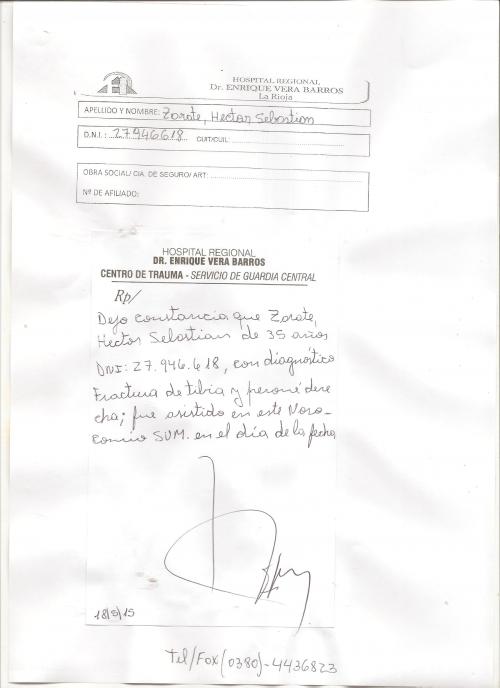 HOSPITAL REGIONAL
Dr. ENRIQUE VERA BARROS
La Rioja
APELLIDO Y NOMBRE: Zarate, Hector Sebastian
D.N.I.: 27.946618 CUIT/CUIL:
OBRA SOCIAL/ CIA. DE SEGURO/ ART:
Nº DE AFILIADO:
HOSPITAL REGIONAL
DR. ENRIQUE VERA BARROS
CENTRO DE TRAUMA - SERVICIO DE GUARDIA CENTRAL
Rp/
Dejo constancia que Zarate,
Hector Sebastian de 35 años
DNI: 27.946.618, con diagnóstico
Fractura de tibia y peroné dere
cha; fue asistido en este Noso-
comio SUM. en el día de la fecha
18/5/15
Tel/Fax (0380)-4436823